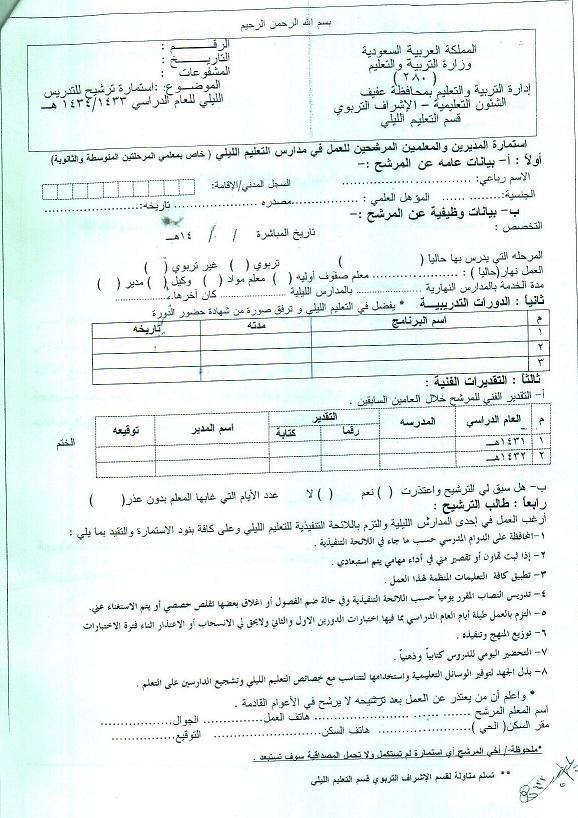 بسم الله الرحمن الرحيم
المملكة العربية السعودية
وزارة التربية والتعليم
( ٢٨٠ )
إدارة التربية والتعليم بمحافظة عفيف
الشئون التعليمية – الإشراف التربوي
قسم التعليم الليلي
الرقـــــــم :
التاريـــــخ :
المشفوعات :
الموضـــوع: :استمارة ترشيح للتدريس
الليلي للعام الدراسي ١٤٣٤/١٤٣٣ هـــ
استمارة المديرين والمعلمين المرشحين للعمل في مدارس التعليم الليلي ( خاص بمعلمي المرحلتين المتوسطة والثانوية)
أولاً : أ- بيانات عامه عن المرشح :-
الاسم رباعي: ........................ السجل المدني/الإقامة:
الجنسية: ............ المؤهل العلمي : ................مصدره ................ تاريخه:........................
ب- بيانات وظيفية عن المرشح :-
التخصص : تاريخ المباشرة / / ١٤هــ
المرحله التي يدرس بها حاليا ( ) تربوي ( ) غير تربوي ( )
العمل نهار(حاليا) : .................. معلم صفوف أوليه ( ) معلم مواد ( ) وكيل ( ) مدير ( )
مدة الخدمة بالمدارس النهارية .................. بالمدارس الليلية .................. كان آخرها ..................
ثانياً : الدورات التدريبيـــة * يفضل في التعليم الليلي و ترفق صورة من شهادة حضور الدورة
م اسم البرنامج مدته تاريخه
١
٢
٣
ثالثاً : التقديرات الفنية :
أ- التقدير الفني للمرشح خلال العامين السابقين .
م العام الدراسي المدرسه التقدير اسم المدير توقيعه
رقما كتابة
الختم
١ ١٤٣١هــ
٢ ١٤٣٢هــ
ب- هل سبق لي الترشيح واعتذرت ( ) نعم ( ) لا عدد الأيام التي غابها المعلم بدون عذر( )
رابعاً : طالب الترشيح :
أرغب العمل في إحدى المدارس الليلية والتزم باللائحة التنفيذية للتعليم الليلي وعلى كافة بنود الاستمارة والتقيد بما يلي :
١-المحافظة على الدوام المدرسي حسب ما جاء في اللائحة التنفيذية .
٢- إذا ثبت تهاون أو تقصير مني في أداء مهامي يتم استبعادي .
٣- تطبيق كافة التعليمات المنظمة لهذا العمل .
٤- تدريس النصاب المقرر يومياً حسب اللائحة التنفيذية وفي حالة ضم الفصول أو اغلاق بعضها تقلص حصصي أو يتم الاستغناء عني.
٥- التزم بالعمل طيلة أيام العام الدراسي بما فيها اختبارات الدورين الاول والثاني ولايحق لي الانسحاب أو الاعتذار اثناء فترة الاختبارات
٦- توزيع المنهج وتنفيذه .
٧- التحضير اليومي للدروس كتابياً وذهنياً .
٨- بذل الجهد لتوفير الوسائل التعليمية واستخدامها لتتناسب مع خصائص التعليم الليلي وتشجيع الدارسين على التعلم .
* واعلم أن من يعتذر عن العمل بعد ترشيحه لا يرشح في الأعوام القادمة .
اسم المعلم المرشح .................. هاتف العمل.................. الجوال..................
مقر السكن( الحي ) .................. هاتف السكن.................. التوقيع..................
*ملحوظة-/ أخي المرشح أي استمارة لم تستكمل ولا تحمل المصداقية سوف تستبعد .
** تسلم مناولة لقسم الإشراف التربوي قسم التعليم الليلي